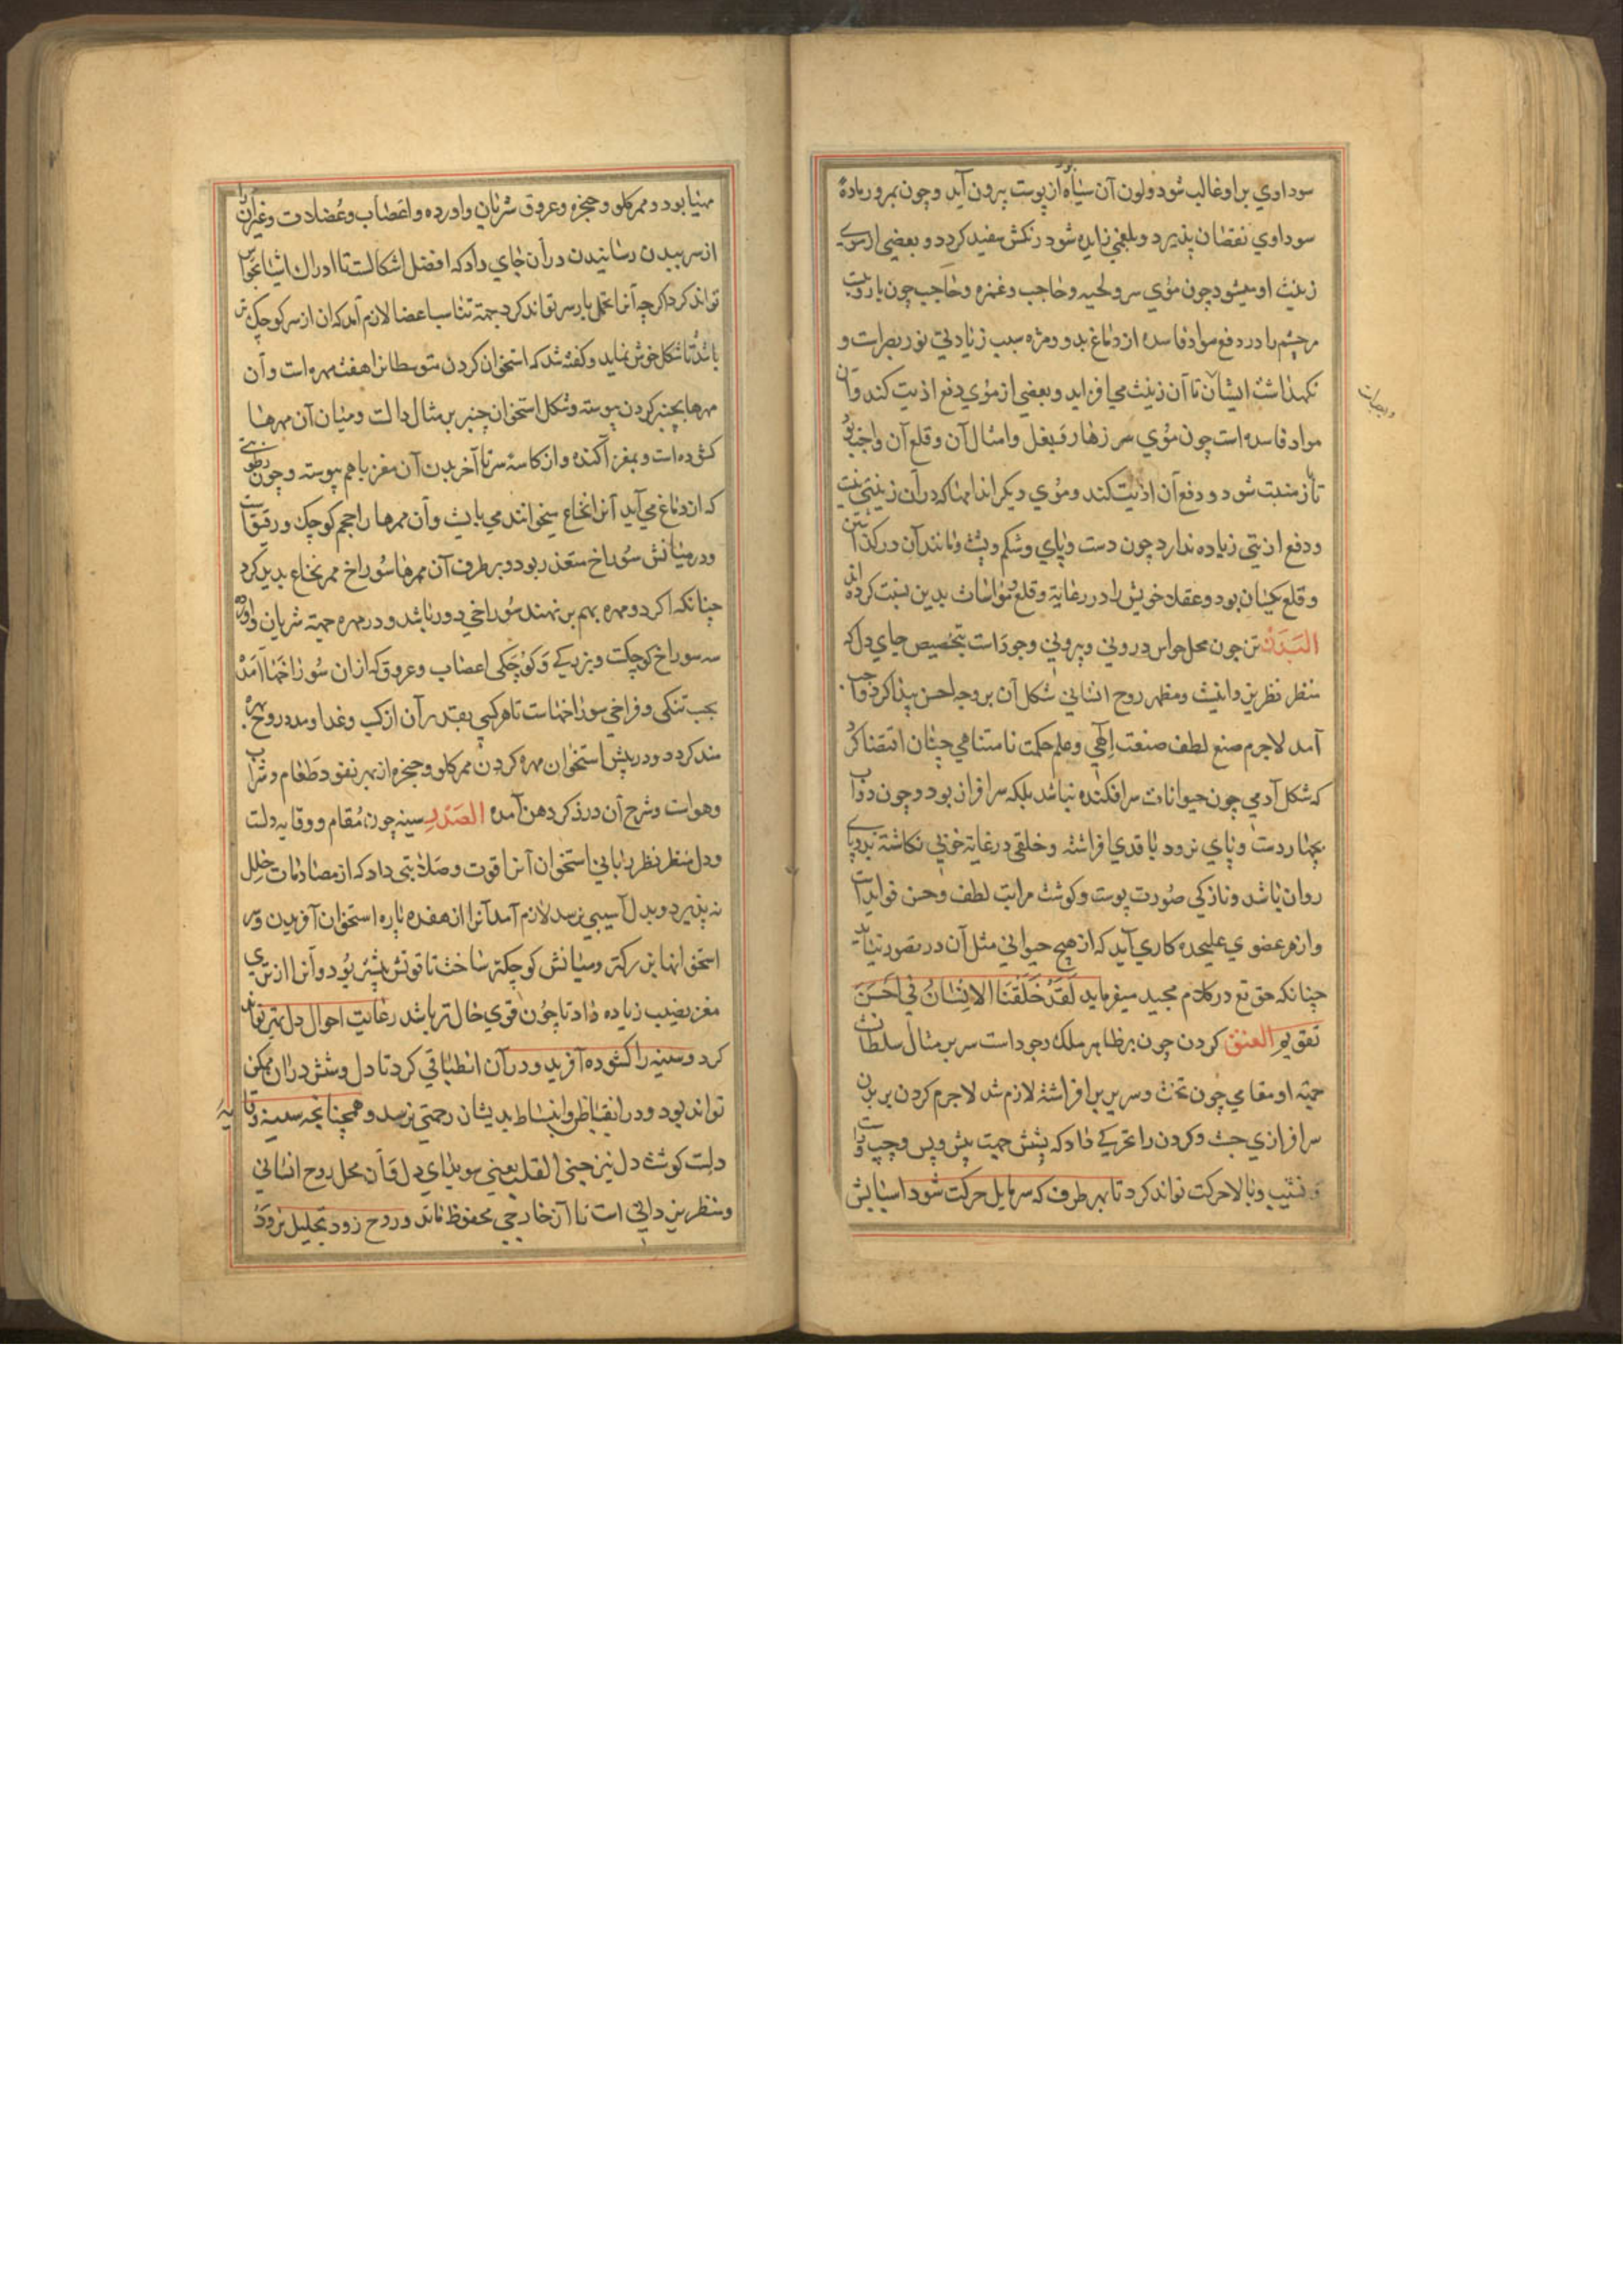 سوداوي براو غالب شود ولون آن سیاه از پوست بیرون آید وچون بمرور مادهٔ
سوداوي نقصان پذیرد وبلغمي زایده شود رنکش سفید کردد و بعضي از موي
زینت او میشود چون موي سر ولحیه وحاجب وغمزه وحاجب چون
مرچشم را در دفع مواد فاسده از دماغ بدو ومژه سبب زیادتي نور بصرات و
نکهداشت ایشان تا آن زینت مي افزاید وبعضي از موي دفع اذیت کند وآن
مواد فاسده است چون موي سر زهار وبغل وامثال آن وقلع آن واجب بود
تا زینت شود ودفع آن اذیت کند وموي دیکر اندامها که در آن زینتي نیست
ودفع اذیتي زیاده ندارد چون دست وپاي وشکم وپشت ومانند آن درکذاشتن
وقلع یکسان بود وعقلا خویش را در رعایة وقلع بدین نسبت کرده اند
البدن تن چون محل حواس دروني وبیروني وجود است بتخصیص جاي دل که
منظر نظر یزدانیست ومظهر روح انساني شکل آن بر وجه احسن پیدا کردن واجب
آمد لاجرم صنع لطف صنعت الهي وعلم حکمت نامتناهي چنان اقتضا کرد
که شکل آدمي چون حیوانات سرافکنده نباشد بلکه سرافراز بود وچون دواب
بچهار دست وپاي نرود با قدي افراشته وخلقي در غایة خوبي نکاشته بدو پاي
روان باشد ونازکي صورت پوست وکوشت مراتب لطف وحسن فواید است
وازهر عضوي علیحده کاري آید که از هیچ حیواني مثل آن در تصور نیاید
چنانکه حق تع در کلام مجید میفرماید لَقَدْ خَلَقْنَا الاِنْسَانَ فِي اَحْسَنِ
تقویم العنق کردن چون بر ظاهر ملک وجود است سر بر مثال سلطان
جهة او مقامي چون تخت وسریر بر افراشته لازم شد لاجرم کردن بر بدن
سرافرازي جست وکردن را تحریکي داد که بشش جهت پیش وپس وچپ وراست
ونشیب وبالا حرکت تواند کرد تا بهر طرف که سر مایل حرکت شود اسبابش
مهیا بود وممر کلو وحنجره وعروق شریان واورده واعصاب وعضلات وغیر آن را
از سر ببدن رسانیدن در آن جاي داد که افضل اشکالست تا ادراک اشیا بحواس
تواند کرد اکرچه آنرا تحمل بار سر تواند کرد جهة تناسب اعضا لازم آمد که آن از سر کوچک تر
باشد تا شکل خوش نماید وکفته شد که استخوان کردن متوسطانرا هفت مهره است وآن
مهرها بچنبر کردن پیوسته وشکل استخوان چنبر بر مثال دالت ومیان آن مهرها
کشوده است وبمغز آکنده واز کاسهٔ سر تا آخر بدن آن مغز باهم پیوسته وچون رطوبتي
که از دماغ مي آید آنرا نخاع میخوانند مي بایست وآن مهرها را حجم کوچک ورقیق است
ودر میانش سوراخ متعذر بود وبر طرف آن مهرها سوراخ ممر نخاع پدید کرد
چنانکه اکر دو مهره بهم بر نهند سوراخي دور باشد ودر مهره جهة شریان واورده
سه سوراخ کوچکست وبزرکي وکوچکي اعصاب وعروق که از آن سوراخها آمده
بحسب تنکي وفراخي سوراخهاست تا هرکسي بقدر آن از کسب وغذا ومدد روح بهره
مند کردد ودر پیش استخوان مهره کردن ممر کلو وحنجره از بهر نفوذ طعام وشراب
وهوات وشرح آن در ذکر دهن آمده الصدر سینه چون مقام ووقایه دلت
ودل منظر نظر رباني استخوان آنرا قوت وصلابتي داد که از مصادمات خلل
نه پذیرد وبدل آسیبي نرسد لازم آمد آنرا از هفده پاره استخوان آفریدن وسر
استخوانها بزرکتر ومیانش کوچکتر ساخت تا قوتش بیشتر بود وآنرا از تري
مغز نصیب زیاده داد تا چون قوي حال تر باشد رعایت احوال دل بهتر تواند
کرد وسینه را کشوده آفرید ودر آن انطباقي کرد تا دل وشش در آن ممکن
تواند بود ودر انقباض وانبساط بدیشان زحمتي نرسد وهمچنانچه سینه وقایهٔ
دلست کوشت دل نیز جنبي القلب یعني سویداي دل وآن محل روح انساني
ومنظر یزداني است تا از خارجي محفوظ ماند وروح زود بتحلیل نرود